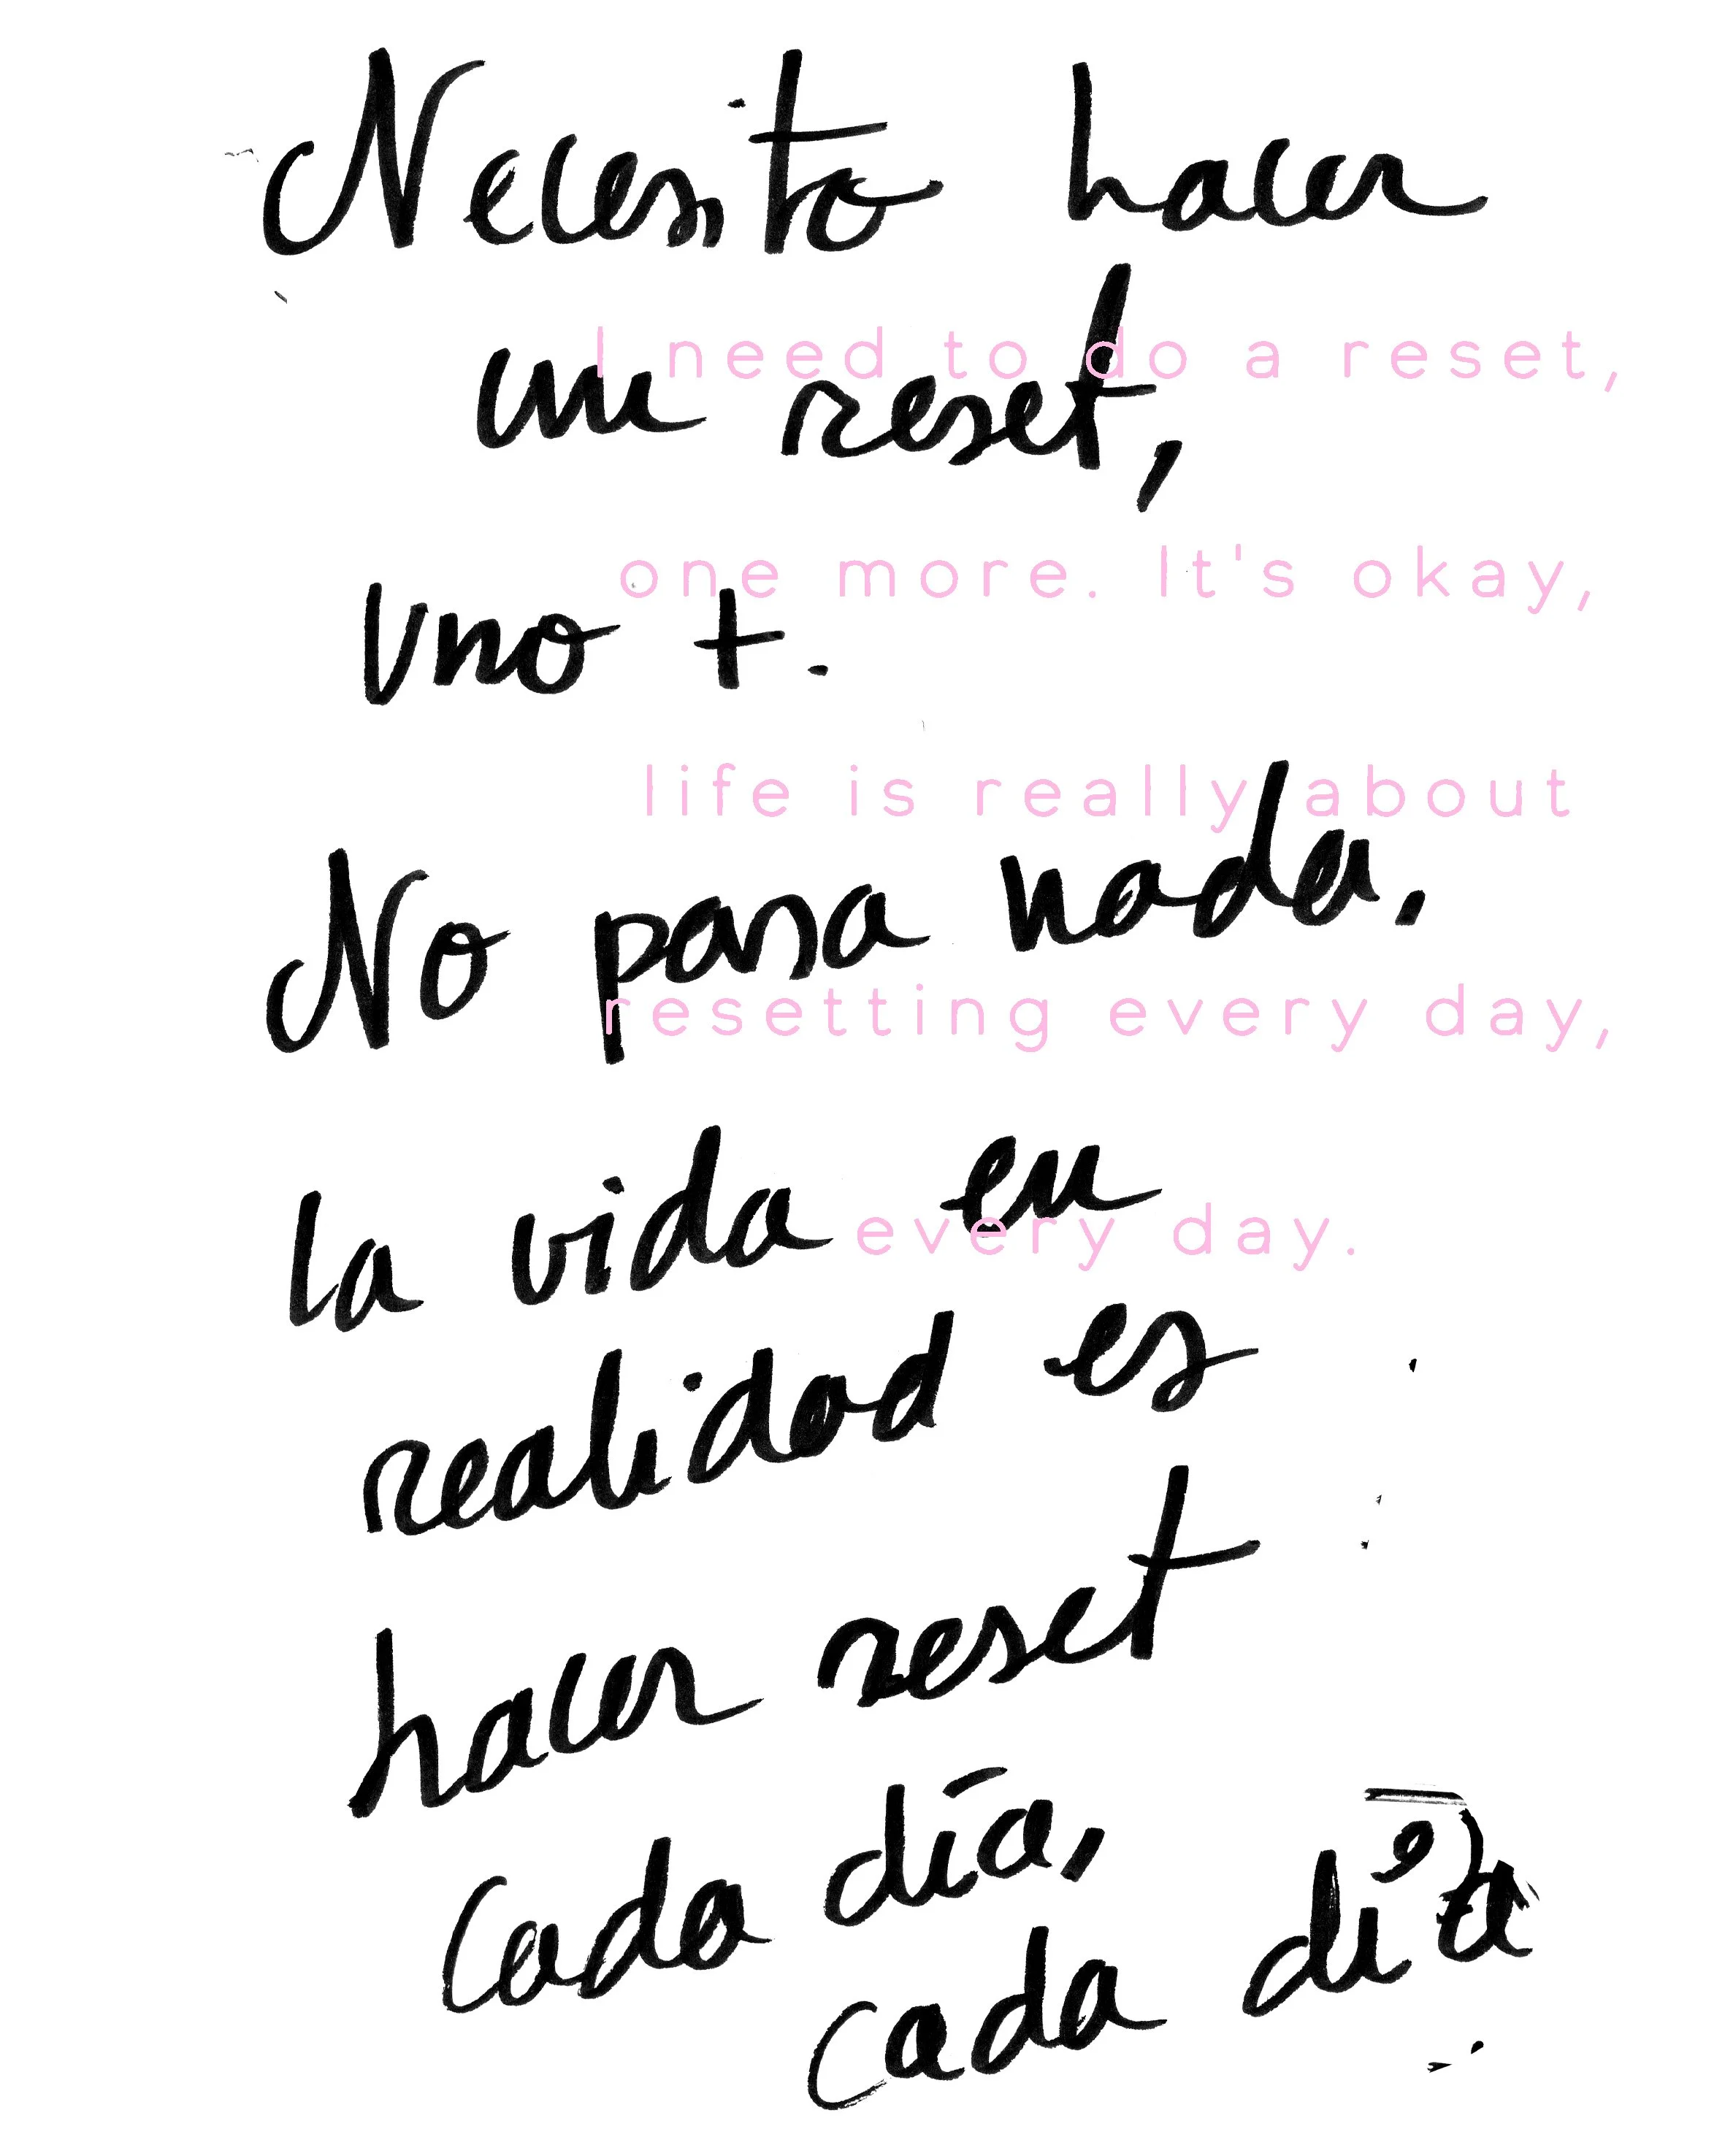 Necesito hacer
un reset,
I need to do a reset,
one more. It's okay,
Uno +.
life is really about
No pasa nada,
resetting every day,
la vida en
every day.
realidad es
hacer reset
Cada día,
cada día